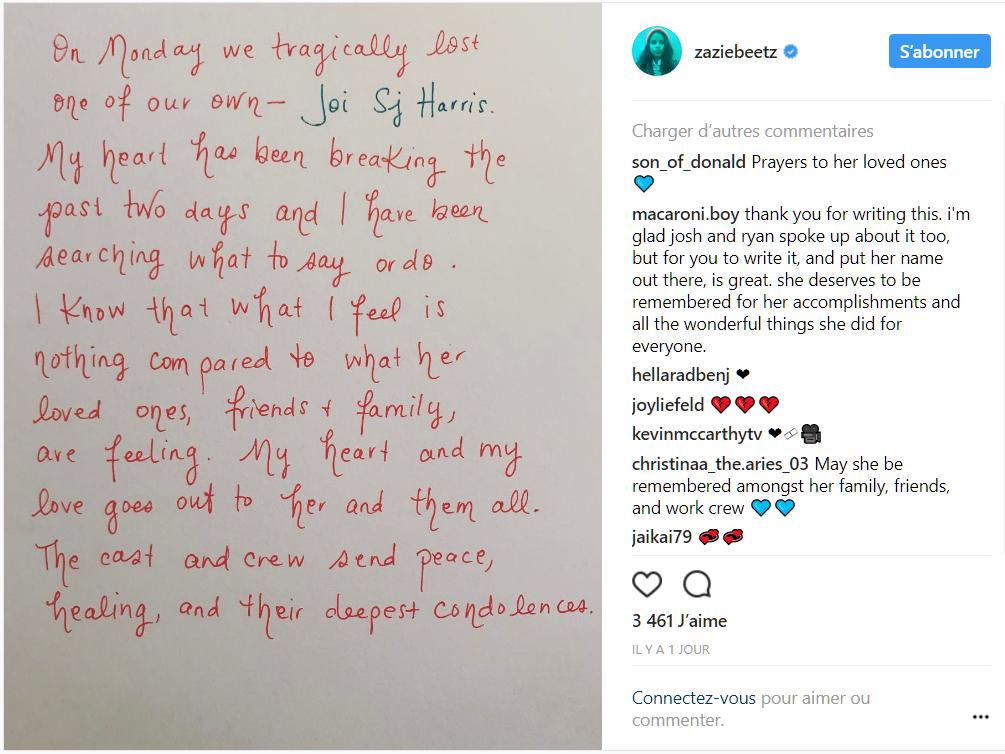 On Monday we tragically lost
one of our own – Joi Sj Harris.
My heart has been breaking the
past two days and I have been
searching what to say or do.
I know that what I feel is
nothing compared to what her
loved ones, friends + family,
are feeling. My heart and my
love goes out to her and them all.
The cast and crew send peace,
healing, and their deepest condolences.
zaziebeetz
S’abonner
Charger d’autres commentaires
son_of_donald Prayers to her loved ones
💙
macaroni.boy thank you for writing this. i'm
glad josh and ryan spoke up about it too,
but for you to write it, and put her name
out there, is great. she deserves to be
remembered for her accomplishments and
all the wonderful things she did for
everyone.
hellaradbenj ❤
joyliefeld 💔💔💔
kevinmccarthytv ❤🎥
christinaa_the.aries_03 May she be
remembered amongst her family, friends,
and work crew 💙💙
jaikai79 💞💞
3 461 J’aime
IL Y A 1 JOUR
Connectez-vous pour aimer ou
commenter.